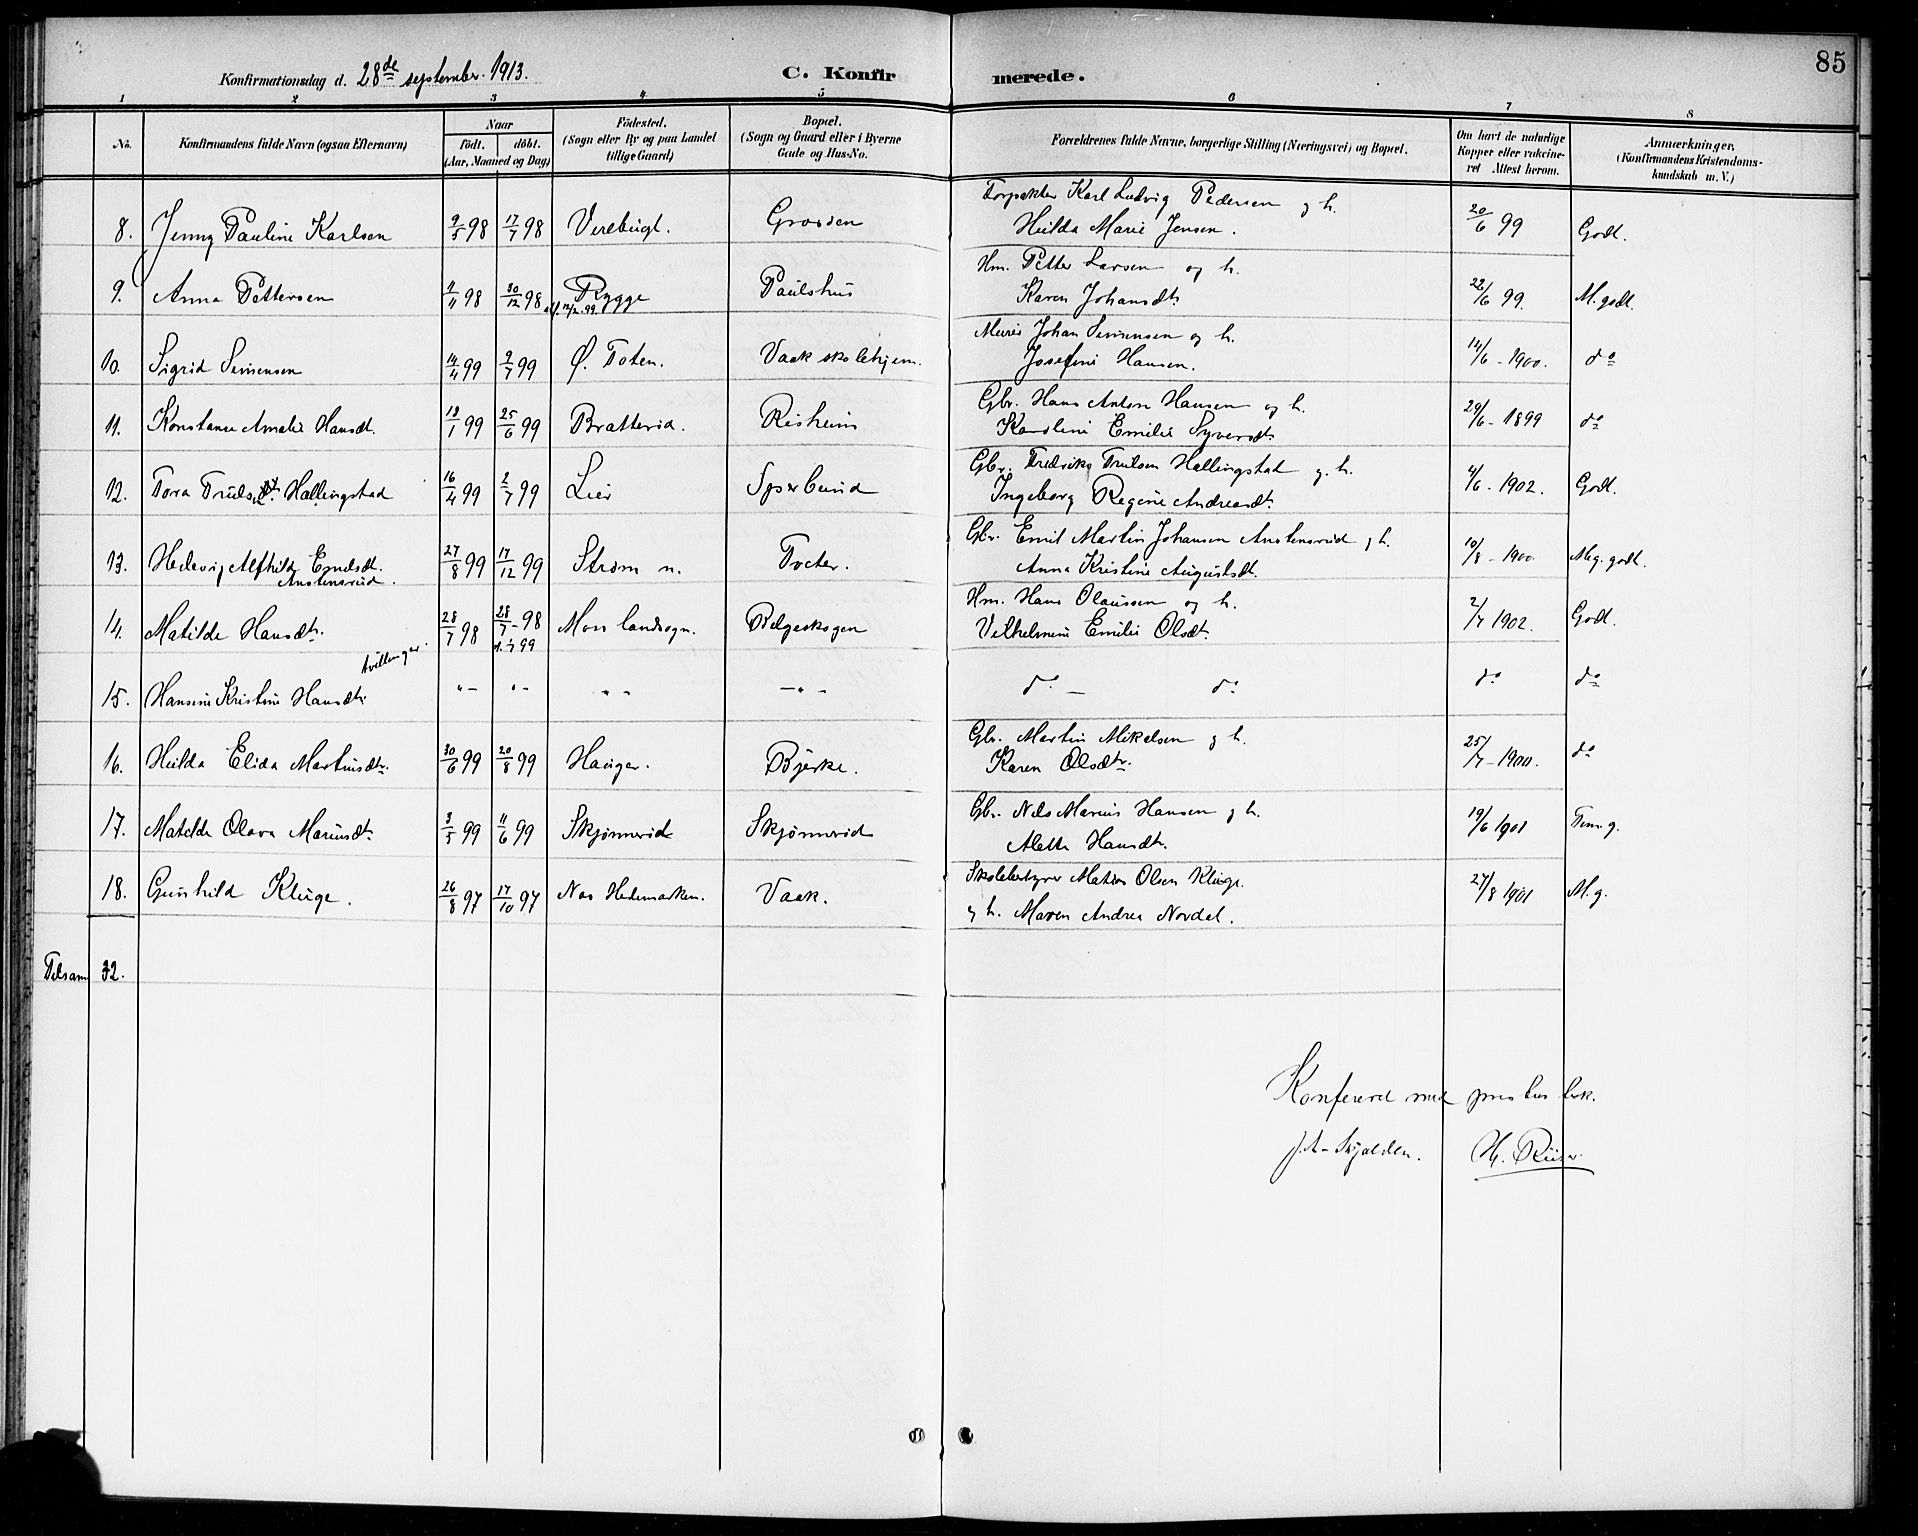 85
Konfirmationsdag d. 28de september 1913.
C. Konfirmerede.
1 2 3 4 5 6 7 8
No.
Konfirmandens fulde Navn (ogsaa Efternavn)
Naar
födt. döbt.
(Aar, Maaned og Dag)
Födested.
(Sogn eller By og paa Landet
tillige Gaard)
Bopæl.
(Sogn og Gaard eller i Byerne
Gade og Hus-No.
Forældrenes fulde Navne, borgerlige Stilling (Næringsvei) og Bopæl.
Om havt de naturlige
Kopper eller vakcine-
ret Attest herom.
Anmærkninger,
(Konfirmandens Kristendoms-
kundskab m. V.)
Torpakter Karl Ludvig Pedersen og h.
8. Jenny Pauline Karlsen 9/5 98 17/7 98 Verebugt. Grosden Hilda Marie Jensen. 20/6 99 Godt.
Hm. Petter Larsen og h.
9. Anna Pettersen 11/11 98 30/12 98 Rygge Paulshus Karen Johansdt. 22/6 99. M. godt.
12/2. 99
Murer Johan Simensen og h.
10. Sigrid Simensen 14/4 99 2/7 99 Ø. Toten. Vaak skolehjem. Josefine Hansen. 14/6 - 1900. do
Gbr. Hans Anton Hansen og h.
11. Konstanse Amalie Hansdt. 18/1 99 25/6 99 Bratterid. Risheim Karoline Emilie Syversdt. 29/6 - 1899 do
Gbr. Fredrik Trulsen Hallingstad og h.
12. Tora Trulsdt. Hallingstad 16/4 99 2/7 99 Lier Sperbund Ingeborg Regine Andreasdt. 4/6 - 1902. Godt.
Gbr. Emil Martin Johansen Anstensrud og h.
13. Hedevig Alfhild Emilsdt. 27/8 99 17/12 99 Strøm n. Tveter. Anna Kristine Augustsdt. 10/8 - 1900 Meg. godt.
Anstensrud.
Hm. Hans Olaussen og h.
14. Matilde Hansdt. 28/7 98 28/7 - 98 Moss landsogn. Bølgeskogen Vilhelmine Emilie Olsdt. 2/7 1902. Godt.
99
tvillinger
15. Hansine Kristine Hansdt. "- "- " " -"- do - do do do
Gbr. Martin Mikelsen og h.
16. Hilda Elida Martinsdtr. 30/6 99 20/8 99 Hauger. Bjerke. Karen Olsdtr. 25/7 - 1900. do
Gbr. Nils Marius Hansen og h.
17. Matilde Olava Mariusdt. 3/5 99 11/6 99 Skjønnerød Skjønnerød Alette Hansdt. 19/6 1901 Tem. g.
Skolebestyrer Matias Olsen Kluge
18. Gunhild Kluge. 26/8 97 17/10 97 Nes Hedemarken. Vaak. og h. Maren Andrea Nordal. 27/8 1901 M. g.
Tilsam 32.
Konfereret med prestens bok.
J. A. Skjolden. H. Riiser